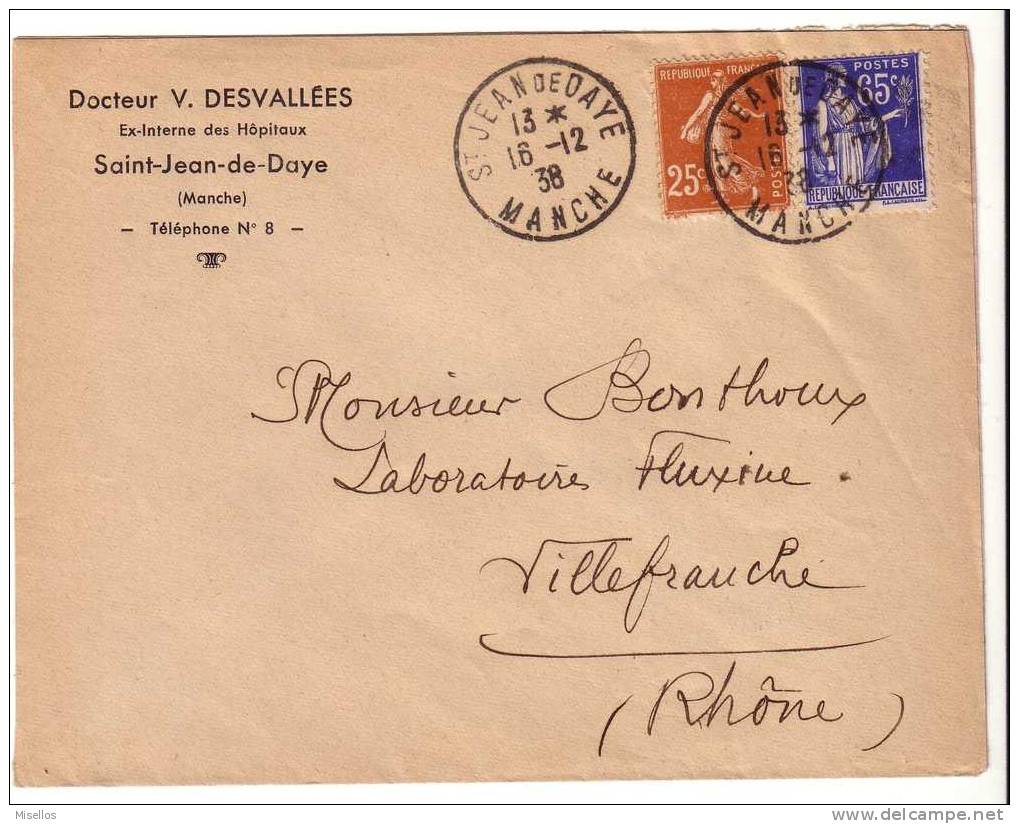 Docteur V. DESVALLÉES
Ex-Interne des Hôpitaux
Saint-Jean-de-Daye
(Manche)
— Téléphone N° 8 —
ST JEAN DE DAYE
13 *
16 -12
38
MANCHE
REPUBLIQUE FRANC
25c
POSTES
ST JEAN DE DAYE
13 *
16 -12
38
MANCHE
POSTES
65c
REPUBLIQUE FRANCAISE
Monsieur Bonthoux
Laboratoires Fluxine.
Villefranche
(Rhône)
Misellos
delcampe.net